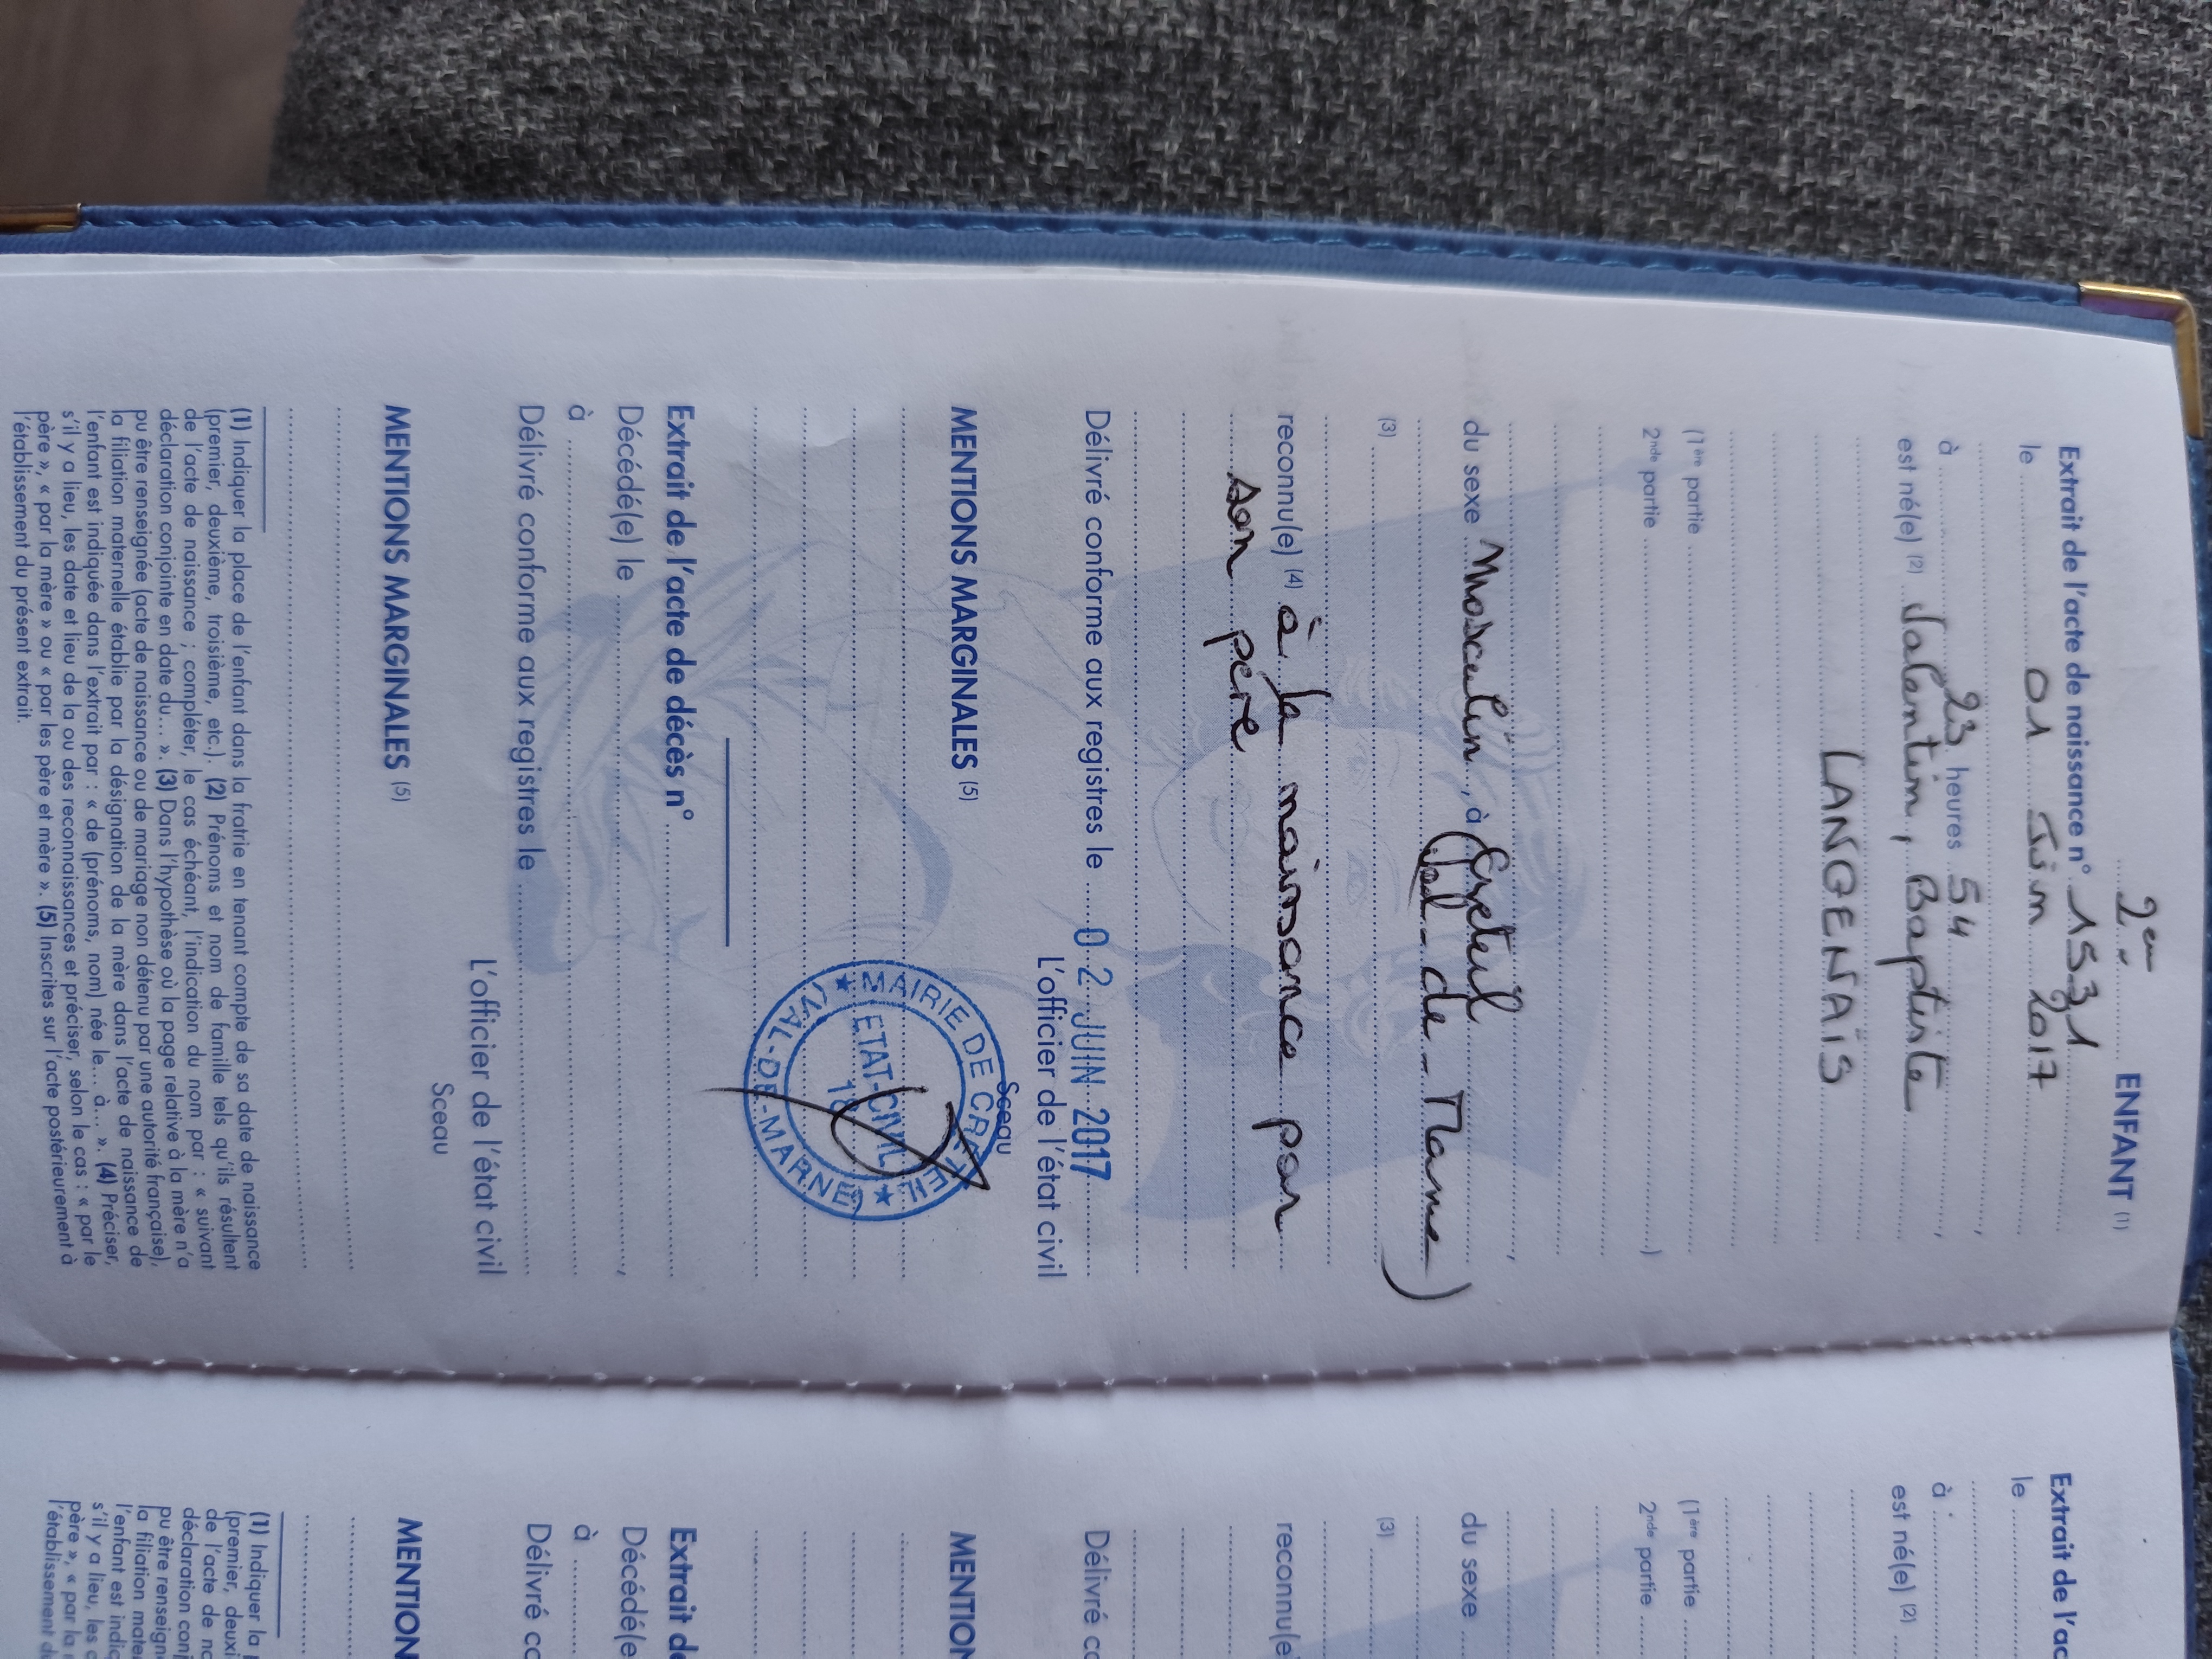 2em ENFANT (1)
Extrait de l'acte de naissance n° 1531
le 01 Juin 2017
à 23 heures 54
est né(e) (2) Valentin, Baptiste
LANGENAIS
(1ère partie
2nde partie )
du sexe Masculin, à Créteil
(Val-de-Marne)
(3)
reconnu(e) (4) à la naissance par
son père
Délivré conforme aux registres le 02 JUIN 2017
L'officier de l'état civil
Sceau
MENTIONS MARGINALES (5)
MAIRIE DE CRÉTEIL
ETAT-CIVIL
18
(VAL-DE-MARNE)
Extrait de l'acte de décès n°
Décédé(e) le ,
à
Délivré conforme aux registres le
L'officier de l'état civil
Sceau
MENTIONS MARGINALES (5)
(1) Indiquer la place de l'enfant dans la fratrie en tenant compte de sa date de naissance
(premier, deuxième, troisième, etc.). (2) Prénoms et nom de famille tels qu'ils résultent
de l'acte de naissance ; compléter, le cas échéant, l'indication du nom par : « suivant
déclaration conjointe en date du... ». (3) Dans l'hypothèse où la page relative à la mère n'a
pu être renseignée (acte de naissance ou de mariage non détenu par une autorité française),
la filiation maternelle établie par la désignation de la mère dans l'acte de naissance de
l'enfant est indiquée dans l'extrait par : « de (prénoms, nom) née le... à... ». (4) Préciser,
s'il y a lieu, les date et lieu de la ou des reconnaissances et préciser, selon le cas : « par le
père », « par la mère » ou « par les père et mère ». (5) Inscrites sur l'acte postérieurement à
l'établissement du présent extrait.
Extrait de l'ac
le
à
est né(e) (2)
(1ère partie
2nde partie
du sexe
(3)
reconnu(e
Délivré co
MENTION
Extrait de
Décédé(e
à
Délivré co
MENTION
(1) Indiquer la
(premier, deuxi
de l'acte de na
déclaration conj
pu être renseign
la filiation mater
l'enfant est indiq
s'il y a lieu, les
père », « par la
l'établissement d